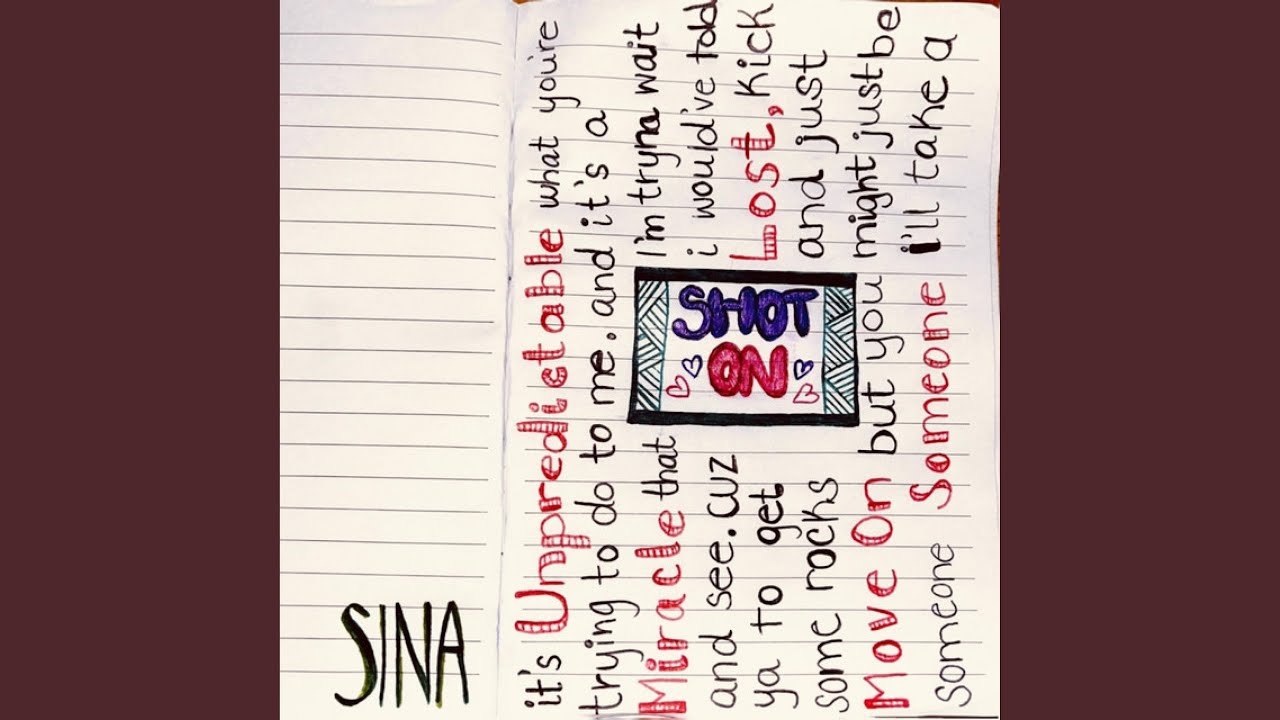 SINA
it's Unpredictable what you're
trying to do to me. and it's a
Miracle that I'm tryna wait
and see. cuz i would've told
ya to get Lost, kick
some rocks and just
Move On but you might just be
someone Someone i'll take a
SHOT
ON